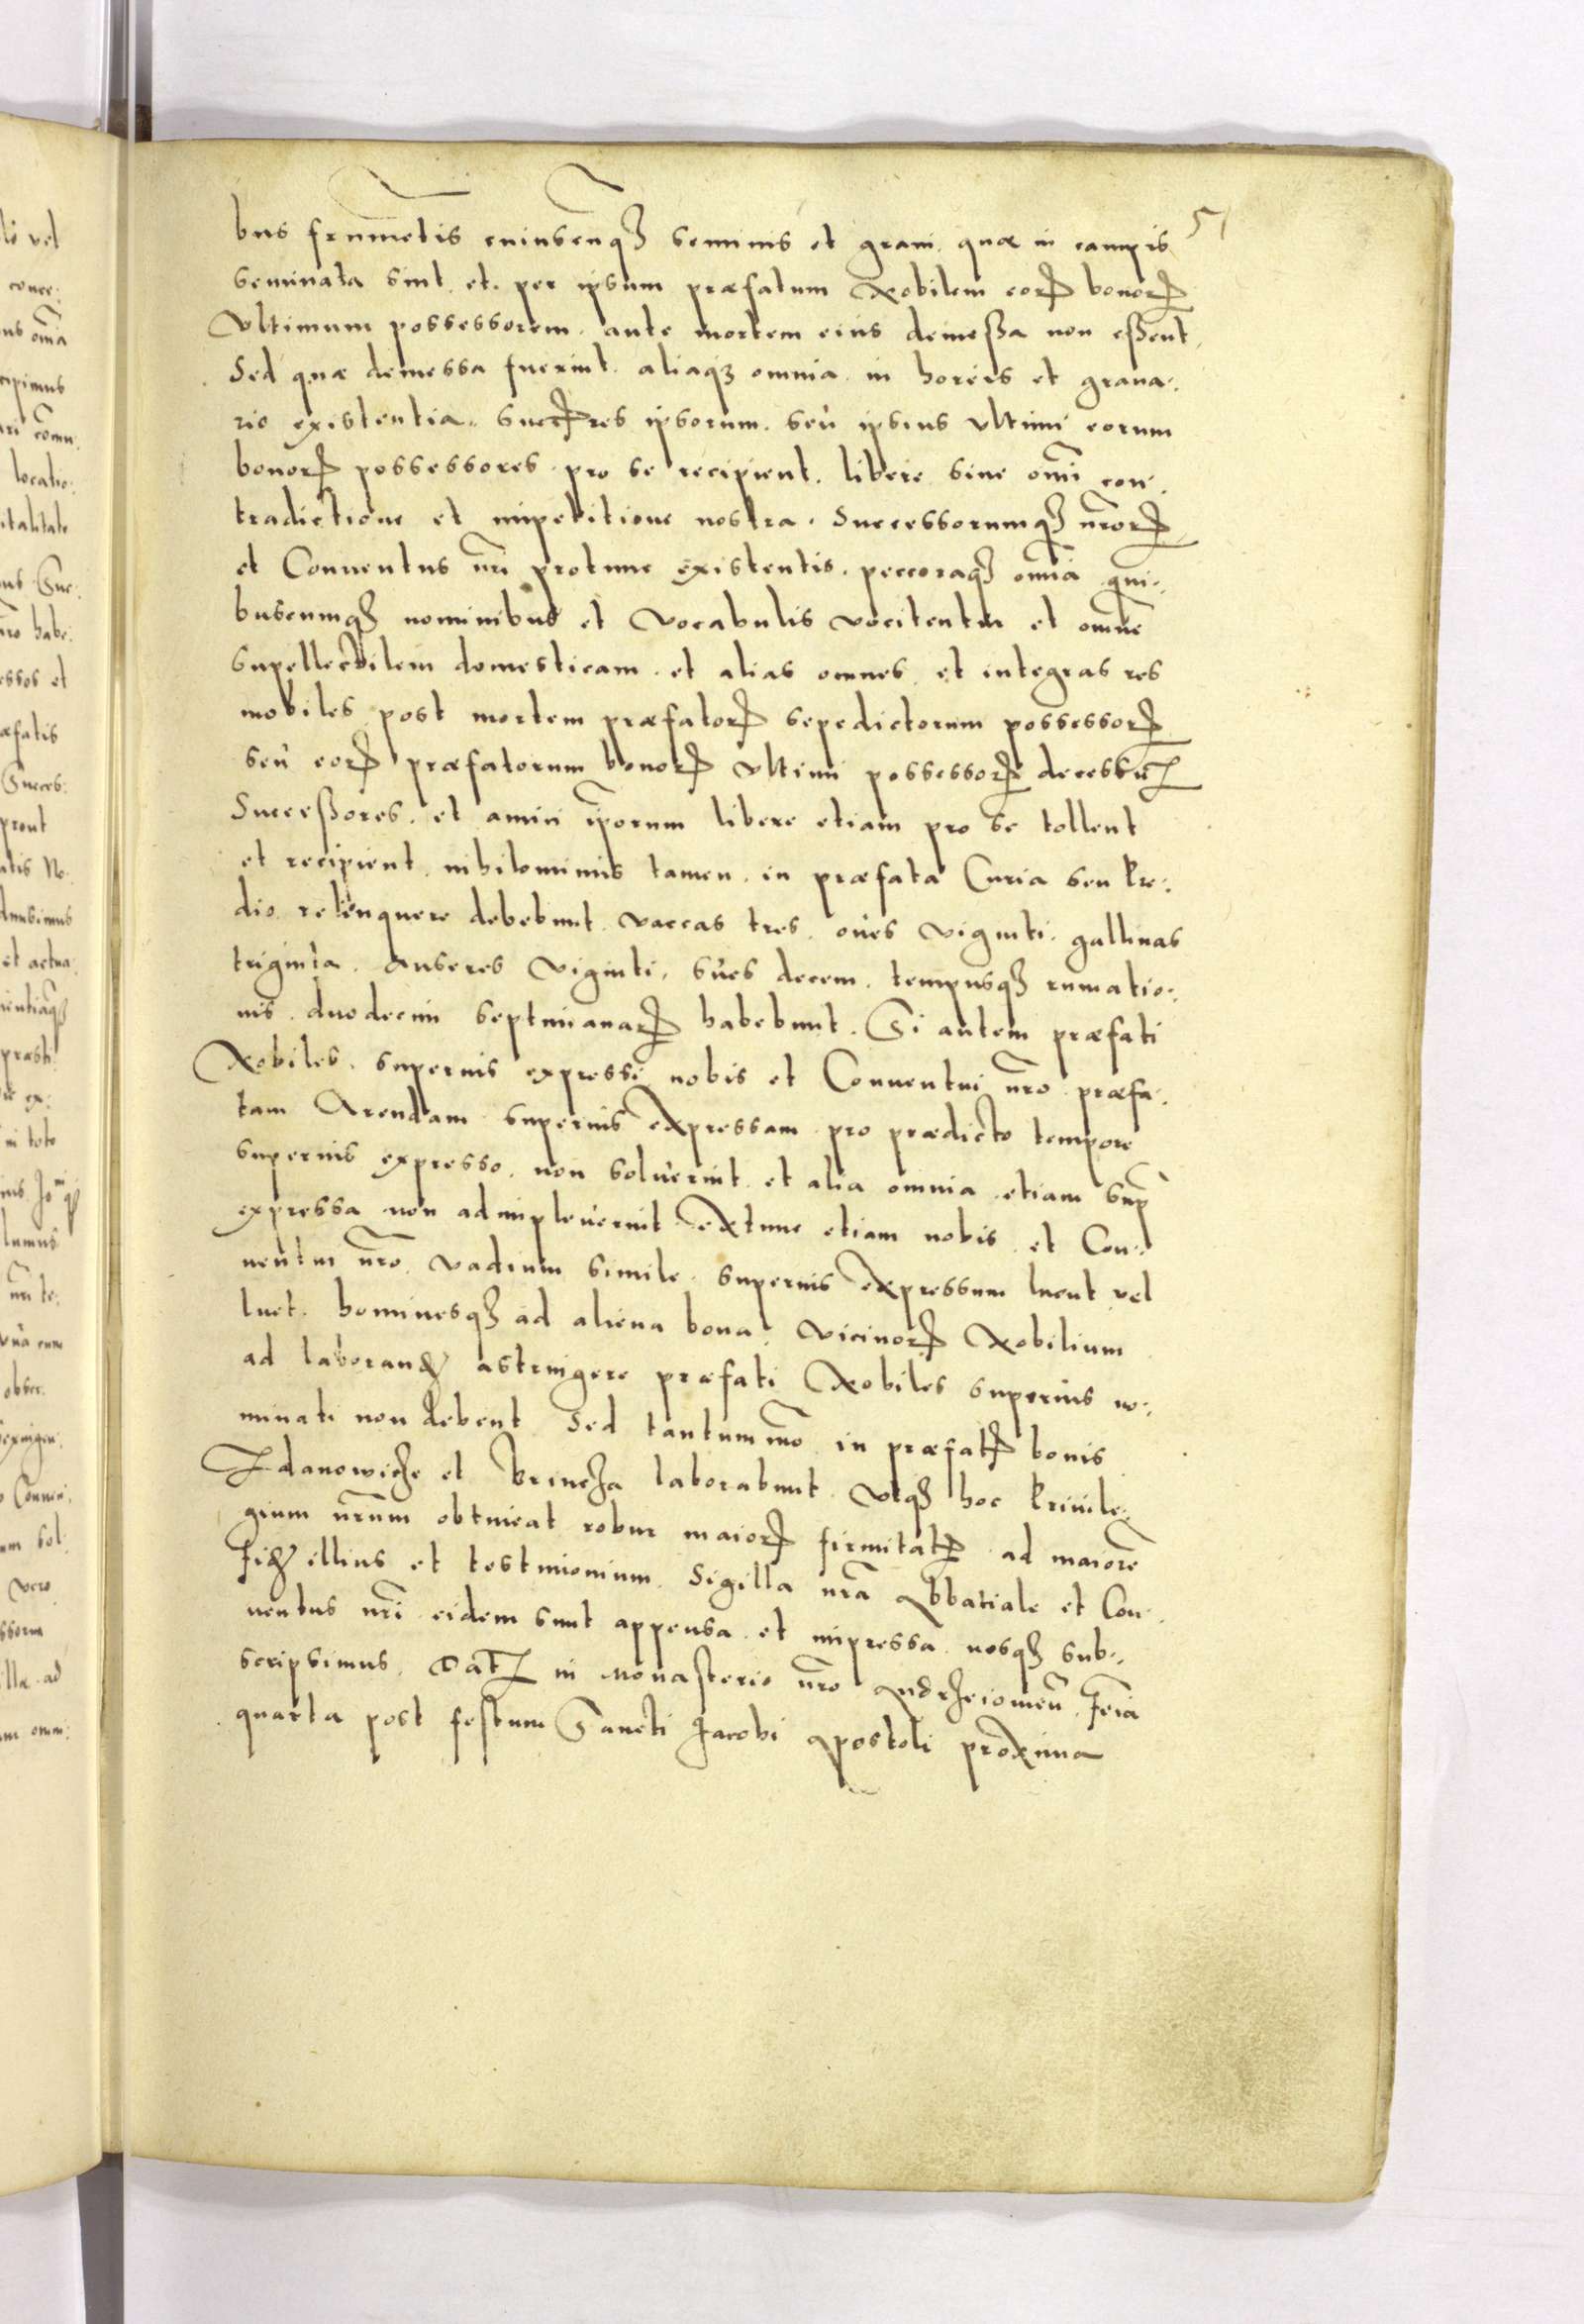 51
bus frumẽtis cuiuscunqꝫ seminis et grani quæ in campis
seminata sint et per ipsum præfatum Nobilem eorꝝ bonorꝝ
Vltimum possessorem ante mortem eius demessa non essent
Sed quæ demessa fuerint aliaqꝫ omnia in horeis et grana:
rio existentia successores ipsorum seu ipsius Vltimi eorum
bonorꝝ possessores pro se recipient libere sine omi con:
tradictione et impetitione nostra Successorumqꝫ nrorꝝ
et Conuentus nri protunc existentis peccoraqꝫ omia qui:
buscumqꝫ nominibus et Vocabulis vocitentur et omne
supellectilem domesticam et alias omnes et integras res
mobiles post mortem præfatorꝝ sepedictorum possessorꝝ
seu eorꝝ præfatorum bonorꝝ Vltimi possessorꝝ decessuꝝ
Successores et amici iporum libere etiam pro se tollent
et recipient nihilominus tamen in præfata Curia seu Pre:
dio relinquere debebunt vaccas tres oues viginti gallinas
triginta Anseres Viginti sues decem tempusqꝫ rumatio:
nis duodecim septimanarꝝ habebunt Si autem præfati
Nobiles superius expressi nobis et Conuentui nro præfa:
tam Arendam superius expressam pro prædicto tempore
superius expresso non soluerint et alia omnia etiam sup
expressa non adimpleuerint extunc etiam nobis et Con:
uentui nro vadium simile superius expressum luent vel
luet hominesqꝫ ad aliena bona Vicinorꝝ Nobilium
ad laborandꝫ astringere præfati Nobiles superius no:
minati non debent Sed tantummo in præfatꝭ bonis
Zdanowicze et Brincza laborabunt Vtqꝫ hoc Priuile:
gium nrum obtineat robur maiorꝭ firmitatꝭ ad maiore
fidꝫ illius et testimonium Sigilla nra Abbatiale et Con:
uentus nri eidem sunt appensa et impressa nosqꝫ sub:
scripsimus Datꝫ in Monasterio nro Andrzeiouien feria
quarta post festum Sancti Jacobi Apostoli proxima